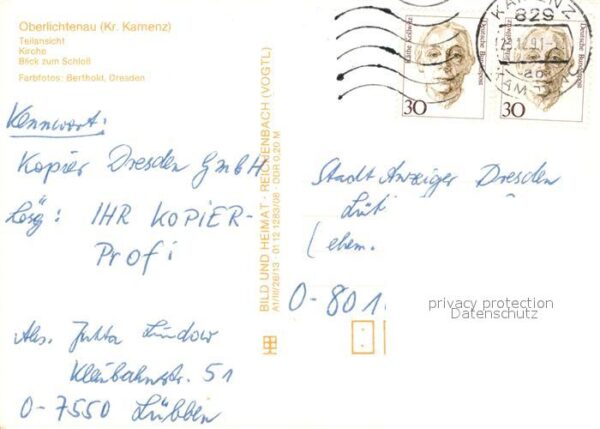 Oberlichtenau (Kr. Kamenz)
Teilansicht
Kirche
Blick zum Schloß
Farbfotos: Berthold, Dresden
Kennwort:
Kopier Dresden GmbH
Lösg: IHR KOPIER-
Profi
Abs. Jutta Lindow
Kleinbahnstr. 51
O-7550 Lübben
BILD UND HEIMAT · REICHENBACH (VOGTL)
A1/III/26/13 · 01 12 1283/08 · DDR 0,20 M
KAMENZ
829
Käthe Kollwitz
Deutsche Bundespost
30
Käthe Kollwitz
Deutsche Bundespost
30
Stadt Anzeiger Dresden
(ehem.
O-801
privacy protection
Datenschutz